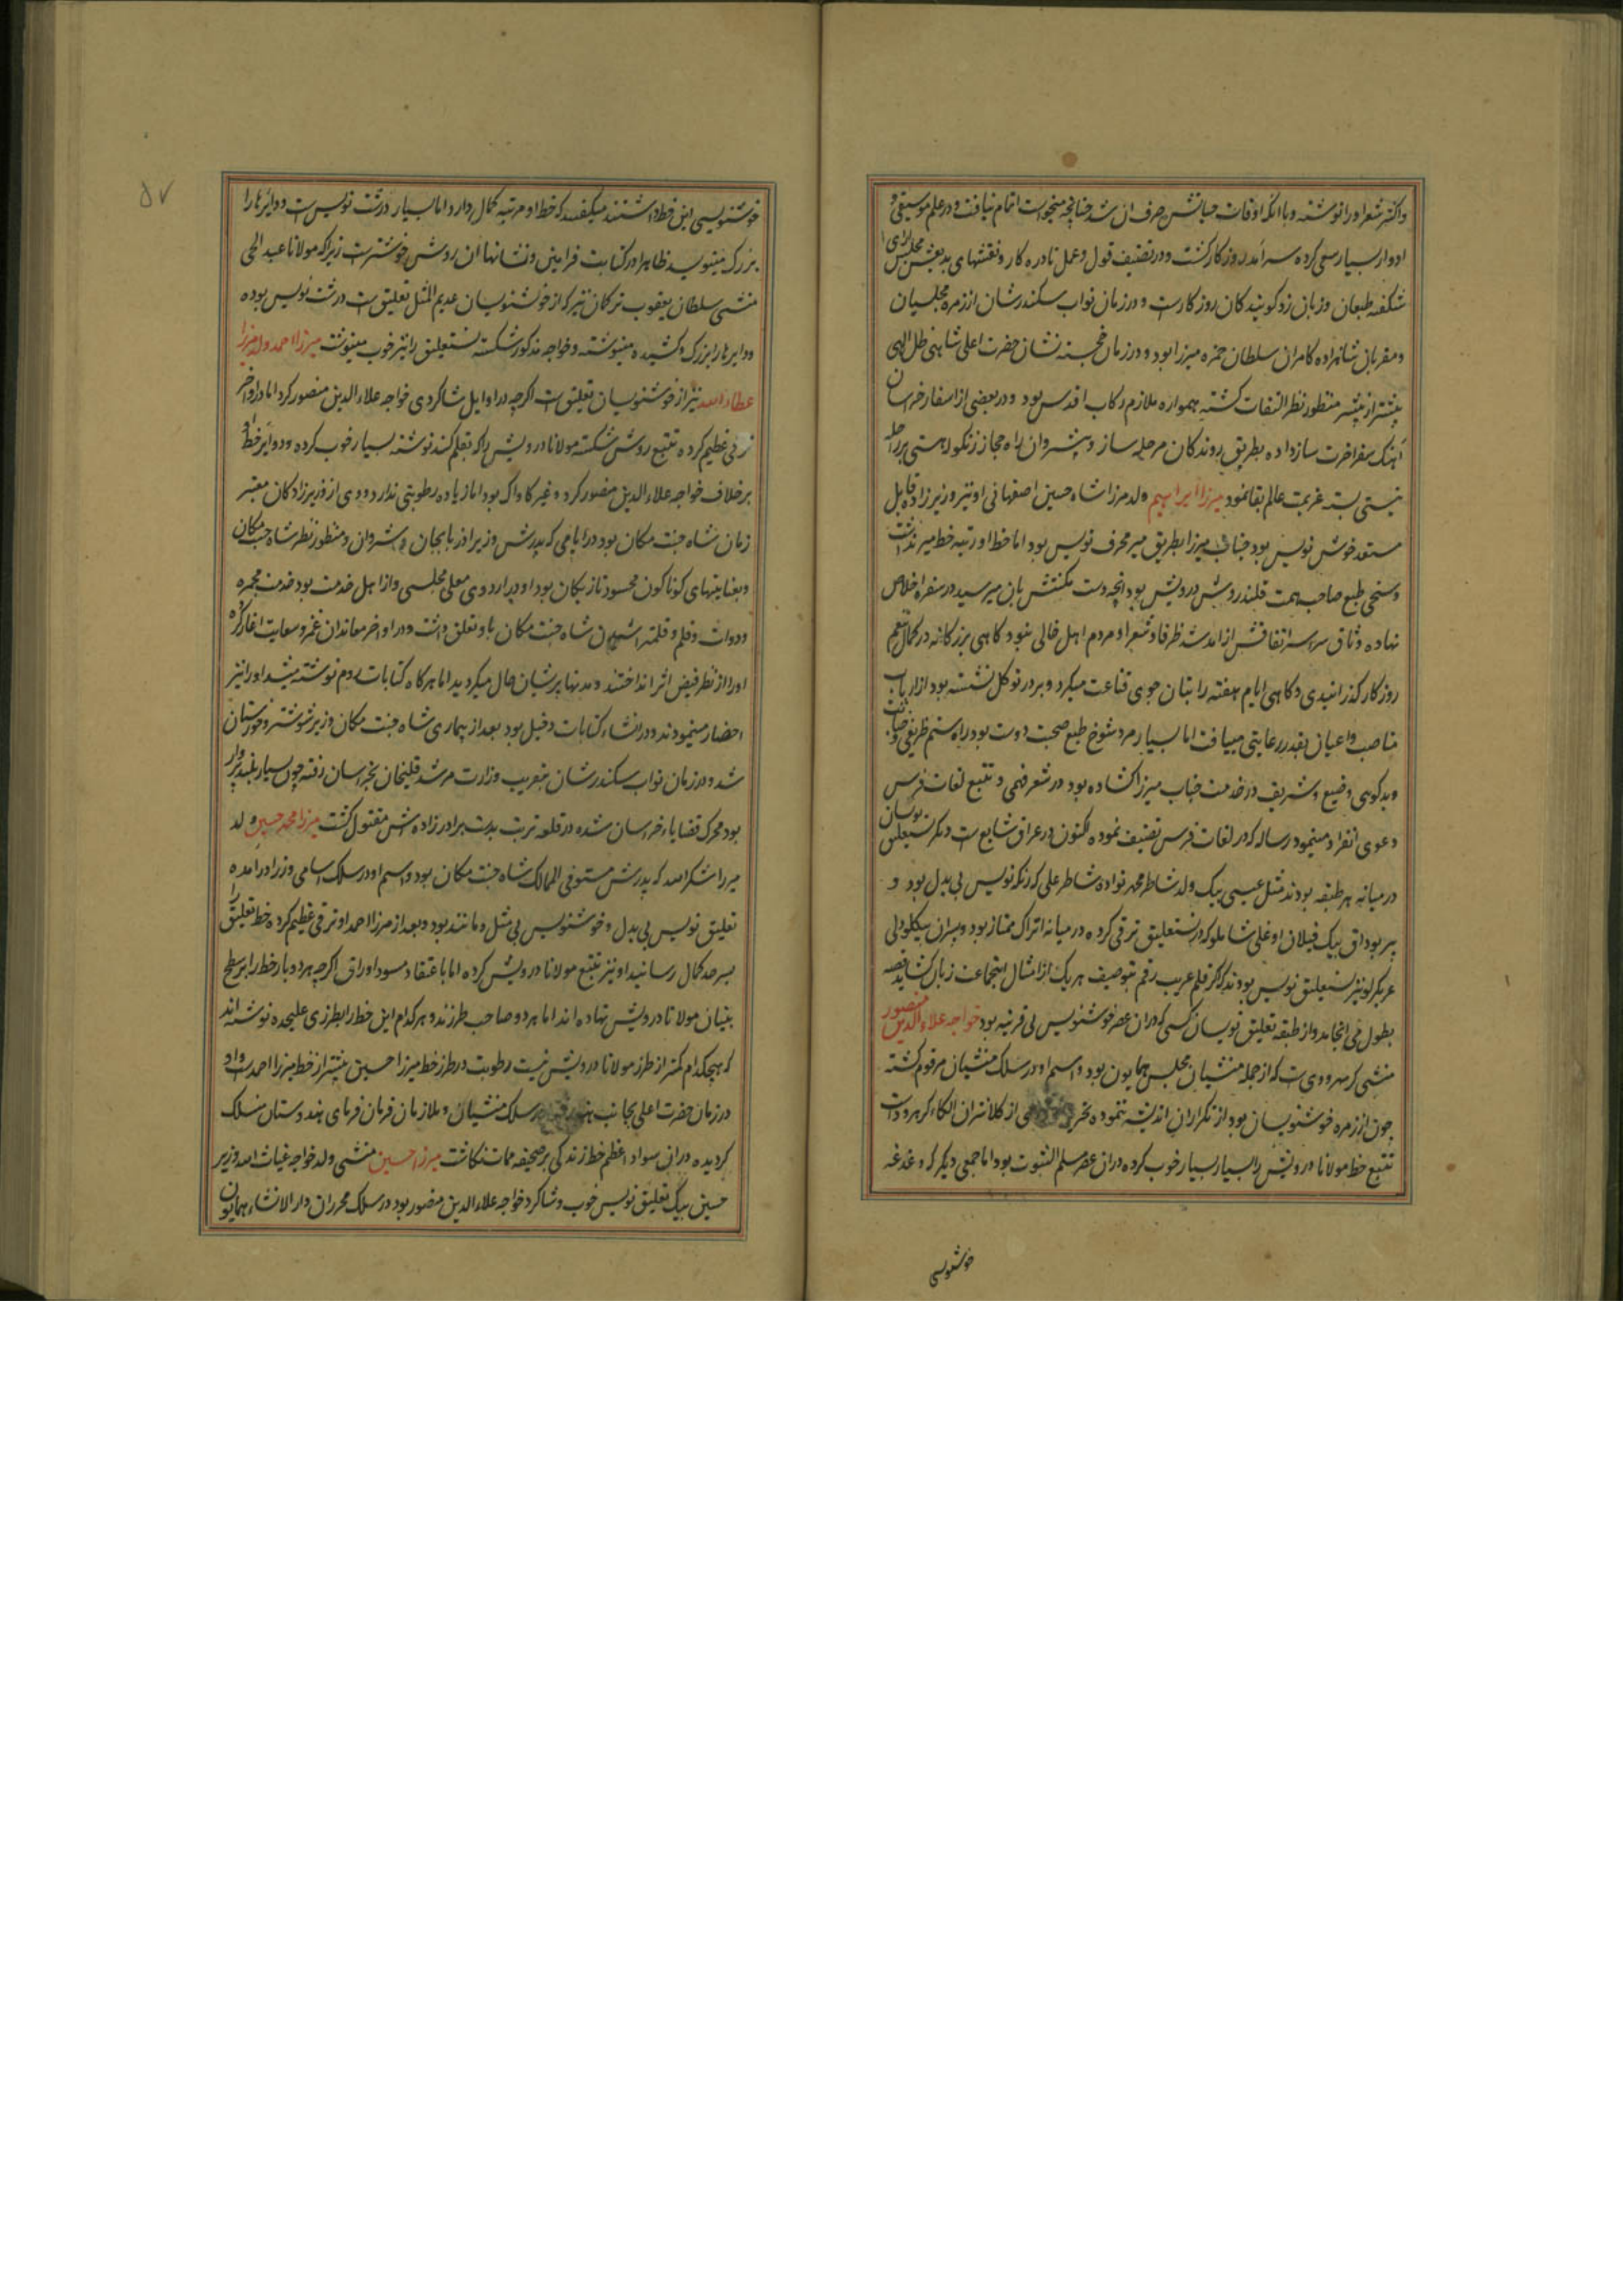 و اکثر شعر او را نوشته و با انکه اوقات حیاتش صرف ان شد چنانچه میخواست اتمام نیافت و در علم موسیقی و
ادوار بسیار سعی کرده سرآمد روزکار کشت و در تصنیف قول و عمل نادره کار و نقشهای بدیعش مجلس ارای
شکفته طبعان و زبان زد کویندکان روزکارست و در زمان نواب سکندرشان از زمره مجلسیان
و مقربان شاهزاده کامران سلطان حمزه میرزا بود و در زمان خجسته نشان حضرت اعلی شاهی ظل الهی
بیشتر از پیشتر منظور نظر التفات کشته همواره ملازم رکاب اقدس بود و در بعضی از اسفار خراسان
آهنک سفر اخرت ساز داده بطریق روندکان مرحله ساز و پیشروان راه مجاز زنکوله هستی بر راحله
نیستی بسته عزیمت عالم بقا نمود میرزا ابراهیم ولد مرزا شاه حسین اصفهانی او نیز وزیرزاده قابل
مستعد خوش نویس بود جناب میرزا بطریق میر محرف نویس بود اما خط او رتبه خط میر نداشت
و سخی طبع صاحب همت قلندر روش درویش بود انچه دست مکنتش بان میرسید در سفره اخلاص
نهاده وثاق سراسر اتفاقش از امد شد ظرفا و شعرا و مردم اهل خالی نبود کاهی بزرکانه در کمال تنعم
روزکار کذرانیدی و کاهی ایام هفته را بنان جوی قناعت میکرد و بر در توکل نشسته بود از ارباب
مناصب و اعیان بقدر رعایتی مییافت اما بسیار مرد شوخ طبع صحبت دوست بود راه ستم ظریفی و خباثت
و بدکویی وضیع و شریف در خدمت جناب میرزا کشاده بود در شعر فهمی و تتبع لغات فرس
دعوی انفراد مینمود رساله که در لغات فرس تصنیف نموده اکنون در عراق شایع است دیکر نستعلیق نویسان
در میانه هر طبقه بودند مثل عیسی بیک ولد شاطر محمد نواده شاطر علی که رنکه نویس بی بدل بود و
پیر بوداق بیک قپلان اوغلی شاملو که در نستعلیق ترقی کرده در میانه اتراک ممتاز بود و پسران بیکلو ولی
عربکرلو نیز نستعلیق نویس بودند که اکر قلم غریب رقم بتوصیف هر یک از امثال اینجماعت زبان کشاید قصه
بطول می انجامد و از طبقه تعلیق نویسان کسی که دران عصر خوشنویس بی قرینه بود خواجه علاء الدین منصور
منشی کرهرودی ست که از جمله منشیان مجلس همایون بود و اسم او در سلک منشیان مرقوم کشته
چون از زمره خوشنویسان بود از تکرار ان اندیشه ننموده تحریر از کلانتران الکاء کرهرودات
تتبع خط مولانا درویش را بسیار بسیار خوب کرده دران عصر مسلم الثبوت بود اما جمعی دیکر که دغدغه
خوشنویسی
۵۷
خوشنویسی این خط داشتند میکفتند که خط او مرتبه کمال دارد اما بسیار درشت نویس است و دوایرها را
بزرک مینویسد ظاهرا در کتابت فرامین و نشانها ان روش خوشترست زیرا که مولانا عبد الحی
منشی سلطان یعقوب ترکمان نیز که از خوشنویسان عدیم المثل تعلیق ست درشت نویس بوده
و دوایرها را بزرک و کشیده مینوشته و خواجه مذکور شکسته نستعلیق را نیز خوب مینوشت میرزا احمد ولد میرزا
عطاء الله نیز از خوشنویسان تعلیق ست اکرچه در اوایل شاکردی خواجه علاء الدین منصور کرد اما در اواخر
ترقی عظیم کرده تتبع روش شکسته مولانا درویش را که بقلم کند نوشته بسیار خوب کرده و دوایر خط او
برخلاف خواجه علاء الدین منصور کرد و غیر کاواک بود اما زیاده رطوبتی ندارد و وی از وزیرزادکان معتبر
زمان شاه جنت مکان بود در ایامی که پدرش وزیر اذربایجان و شروان و منظور نظر شاه جنت مکان
و بعنایتهای کوناکون محسود نازنیکان بود او در اردوی معلی مجلسی و از اهل خدمت بود خدمت مجمره
و دوات و قلم و قلمتراش شاه جنت مکان باو تعلق داشت و در اواخر معاندان غمز و سعایت اغاز کرده
او را از نظر فیض اثر انداختند و مدتها پریشان حال میکردید اما هر کاه کتابات روم نوشته میشد او را نیز
احضار مینمودند و در انشاء کتابات دخیل بود بعد از بیماری شاه جنت مکان وزیر شوشتر و خوزستان
شد و در زمان نواب سکندرشان بتقریب وزارت مرشد قلیخان بخراسان رفته چون بسیار بلندپرواز
بود محرک قضایاء خراسان شده در قلعه تربت بدست برادرزاده اش مقتول کشت میرزا محمد حسین ولد
میرزا شکرالله که پدرش مستوفی الممالک شاه جنت مکان بود و اسم او در سلک اسامی وزرا درامده
تعلیق نویس بی بدل و خوشنویس بی مثل و مانند بود و بعد از مرزا احمد او ترقی عظیم کرده خط تعلیق را
بسرحد کمال رسانید او نیز تتبع مولانا درویش کرده اما باعتقاد مسود اوراق اکرچه هر دو بار خط را بر سطح
بنیان مولانا درویش نهاده اند اما هر دو صاحب طرزند و هر کدام این خط را بطرزی علیحده نوشته اند
که هیچکدام کمتر از طرز مولانا درویش نیست رطوبت در طرز خط میرزا حسین بیشتر از خط میرزا احمد است و او
در زمان حضرت اعلی بجانب هند رفته در سلک منشیان و ملازمان فرمان فرمای هندوستان منسلک
کردیده دران سواد اعظم خط زندکی بر صحیفه ممات نکاشت میرزا حسین منشی ولد خواجه غیاث الله وزیر
حسین بیک تعلیق نویس خوب و شاکرد خواجه علاء الدین منصور بود در سلک محرران دار الانشاء همایون